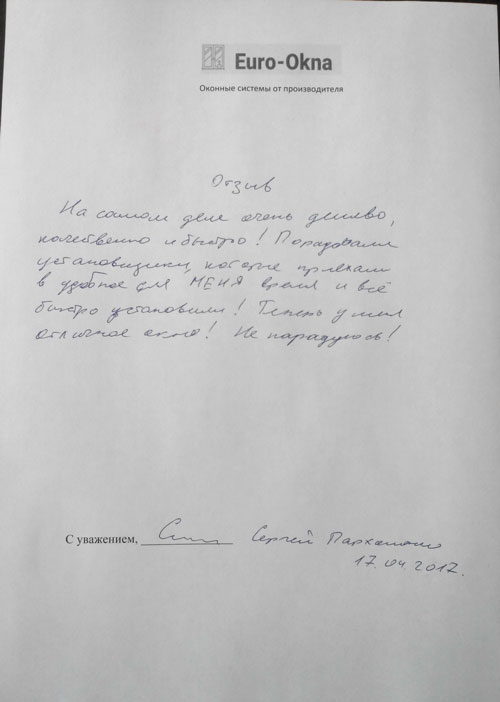 Euro-Okna
Оконные системы от производителя
Отзыв
На самом деле очень дешево,
качественно и быстро! Порадовали
установщики, которые приехали
в удобное для МЕНЯ время и всё
быстро установили! Теперь у меня
отличное окно! Не нарадуюсь!
С уважением, Сергей
17.04.2017.